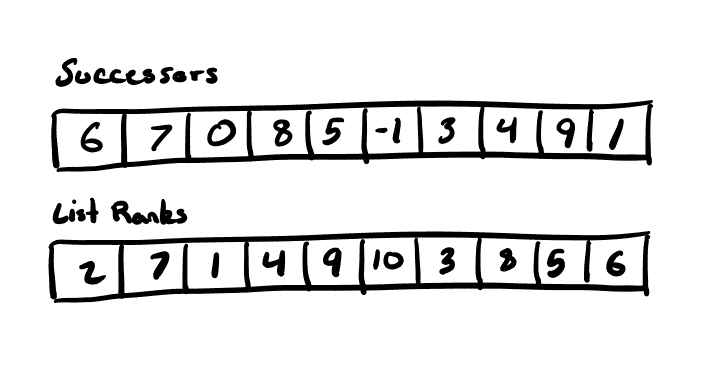 Successors
6 7 0 8 5 -1 3 4 9 1
List Ranks
2 7 1 4 9 10 3 8 5 6